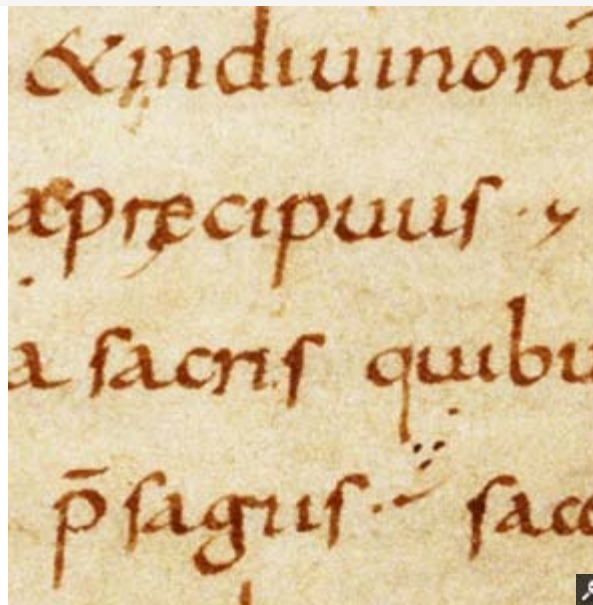 &indiuinorū
æpręcipuus
a sacris quibu
p̄sagus sacc